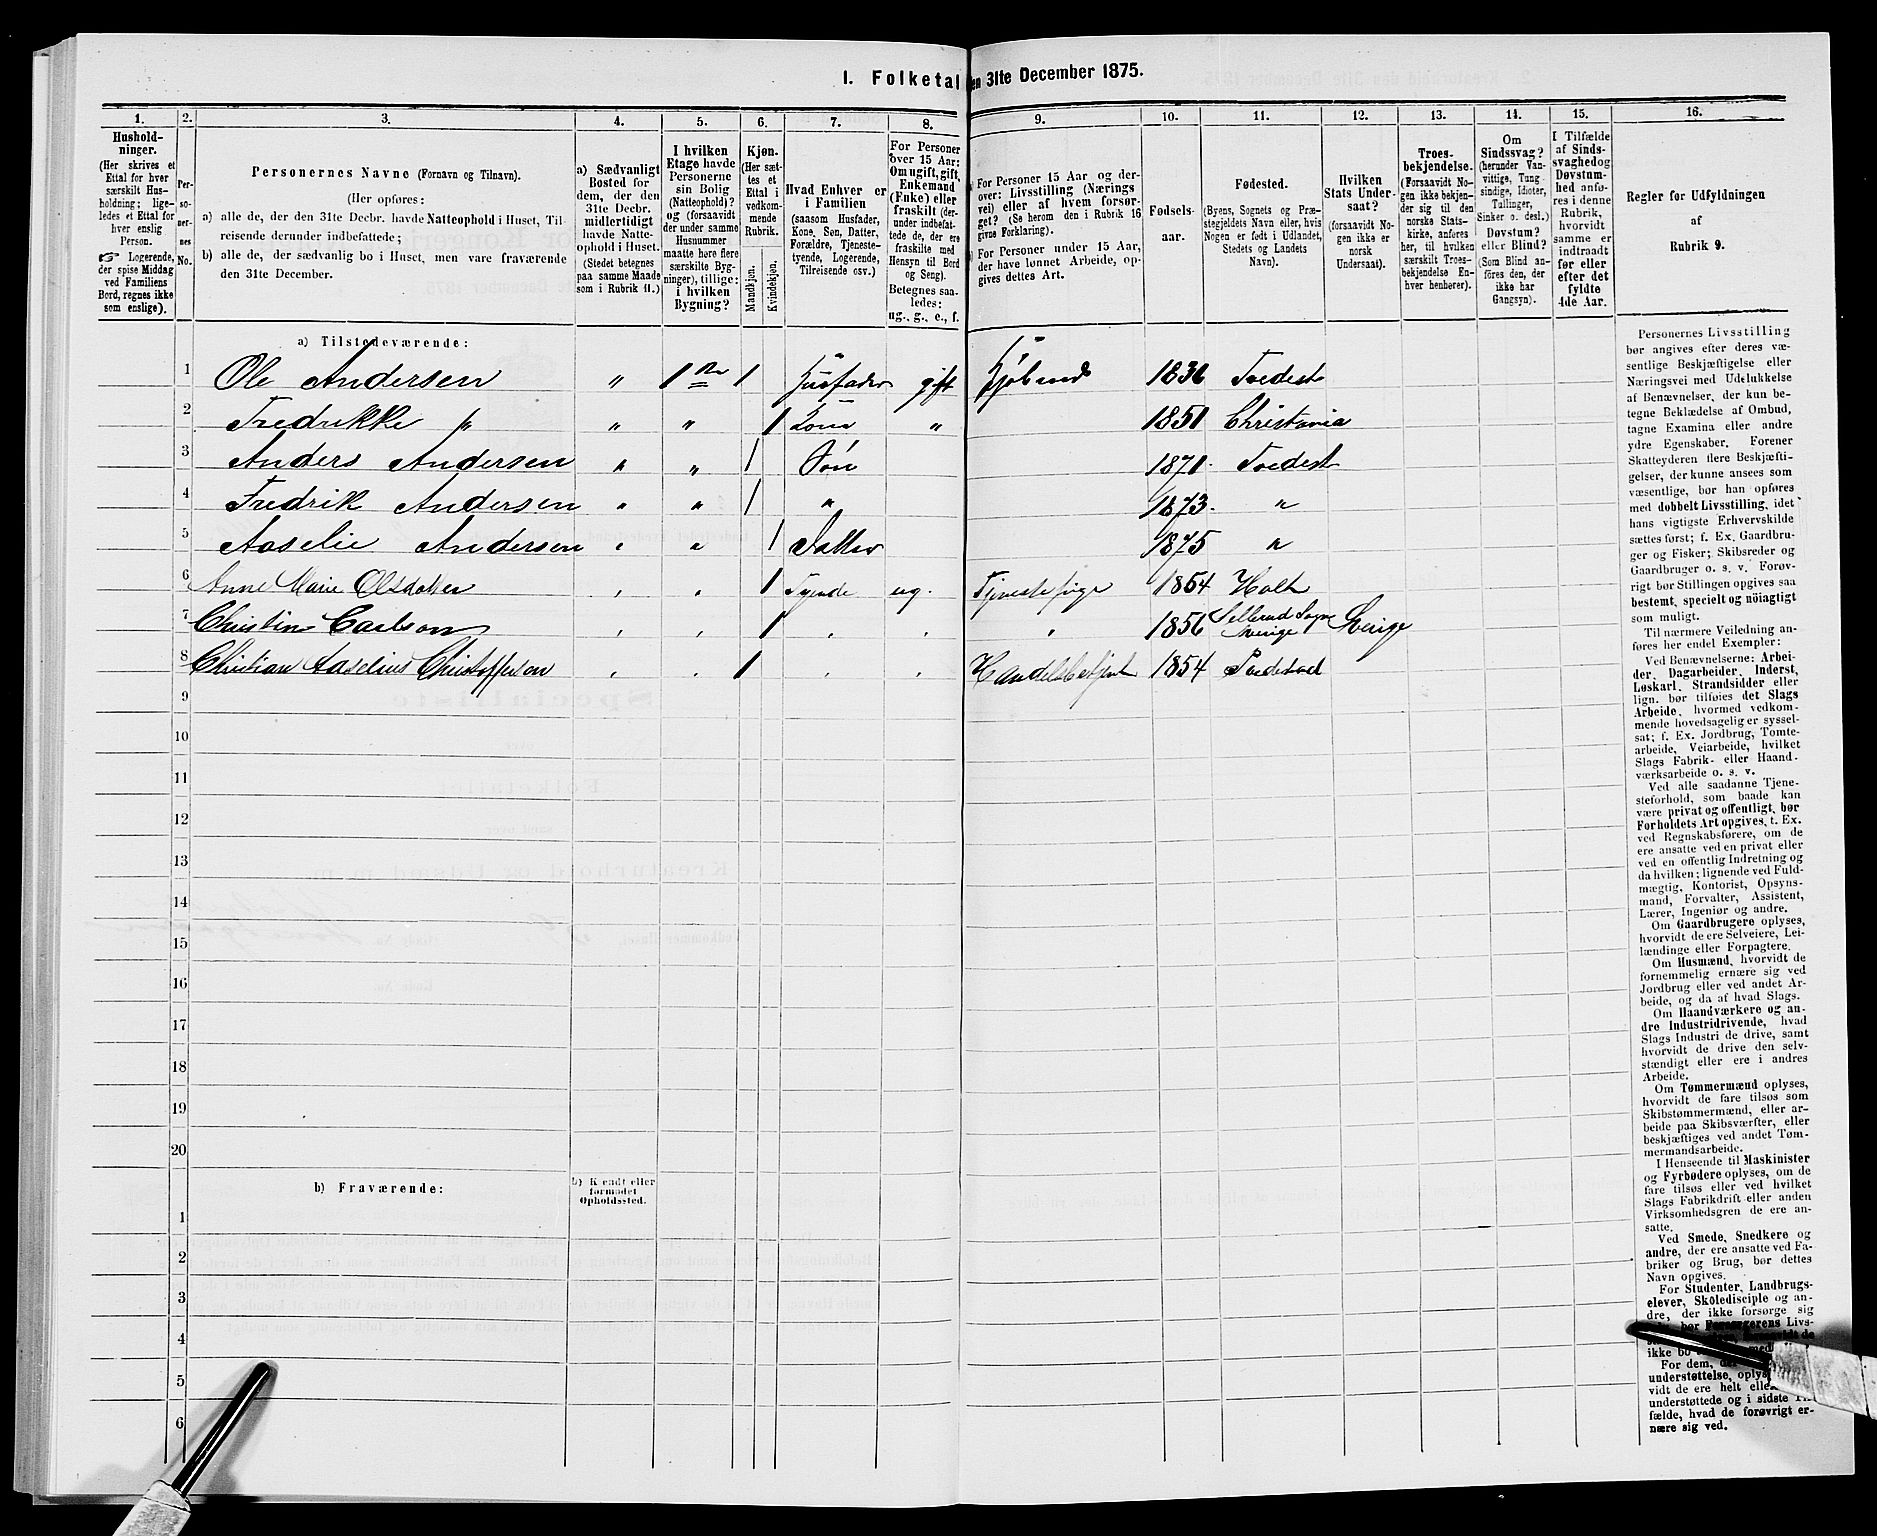 I. Folketal den 31te December 1875.
1. 2. 3. 4. 5. 6. 7. 8. 9. 10. 11. 12. 13. 14. 15. 16.
Hushold-
ninger.
(Her skrives et
Ettal for hver
særskilt Hus-
holdning; lige-
ledes et Ettal for
hver enslig
Person.
☞ Logerende,
der spise Middag
ved Familiens
Bord, regnes ikke
som enslige).
Per-
so-
ner-
nes
No.
Personernes Navne (Fornavn og Tilnavn).
(Her opføres:
a) alle de, der den 31te Decbr. havde Natteophold i Huset, Til-
reisende derunder indbefattede;
b) alle de, der sædvanlig bo i Huset, men vare fraværende
den 31te December.
a) Sædvanligt
Bosted for
dem, der den
31te Decbr.
midlertidigt
havde Natte-
ophold i Huset.
(Stedet betegnes
paa samme Maade
som i Rubrik 11.)
I hvilken
Etage havde
Personerne
sin Bolig
(Natteophold)?
og (forsaavidt
der under samme
Husnummer
maatte høre flere
særskilte Byg-
ninger), tillige:
i hvilken
Bygning?
Kjøn.
(Her sæt-
tes et
Ettal i
vedkom-
mende
Rubrik.
Mandkjøn.
Kvindekjøn.
Hvad Enhver er
i Familien
(saasom Husfader,
Kone, Søn, Datter,
Forældre, Tjeneste-
tyende, Logerende,
Tilreisende osv.)
For Personer
over 15 Aar:
Om ugift, gift,
Enkemand
(Enke) eller
fraskilt (der-
under indbefat-
tede de, der ere
fraskilte med
Hensyn til Bord
og Seng).
Betegnes saa-
ledes:
ug., g., e., f.
For Personer 15 Aar og der-
over: Livsstilling (Nærings
vei) eller af hvem forsør-
get? (Se herom den i Rubrik 16
givne Forklaring).
For Personer under 15 Aar,
der have lønnet Arbeide, op-
gives dettes Art.
Fødsels-
aar.
Fødested.
(Byens, Sognets og Præ-
stegjeldets Navn eller, hvis
Nogen er født i Udlandet,
Stedets og Landets
Navn).
Hvilken
Stats Under-
saat?
(forsaavidt No-
gen ikke er
norsk
Undersaat).
Troes-
bekjendelse.
(Forsaavidt No-
gen ikke bekjen-
der sig til den
norske Stats-
kirke, anføres
her, til hvilken
særskilt Troes-
bekjendelse En-
hver henhører).
Om
Sindssvag?
(herunder Van-
vittige, Tung-
sindige, Idioter,
Tullinger,
Sinker o. desl.)
Døvstum?
eller Blind?
(Som Blind an-
føres den, der
ikke har
Gangsyn).
I Tilfælde
af Sinds-
svaghed og
Døvstum-
hed anfø-
res i denne
Rubrik,
hvorvidt
samme er
indtraadt
før eller
efter det
fyldte
4de Aar.
Regler for Udfyldningen
af
Rubrik 9.
a) Tilstedeværende:
1 Ole Andersen " 1ste 1 Husfader gift Kjøbmd 1836 Tvedest
2 Fredrikke " " " 1 Kone " 1851 Christania
3 Anders Andersen " " 1 Søn 1871. Tvedest
4 Fredrik Andersen " " 1 " 1873. "
5 Aaselie Andersen " " 1 Datter 1875 "
6 Anne Marie Olsdatter " " 1 Tyende ug. Tjenestepige 1854 Holt
7 Christin Carlson " " 1 " " " 1856 Sellerud Sogn Sverige Sverige
8 Christian Aaselius Christoffersen " " 1 " " Handelsbetjent 1854 Tvedestrand
9
10
11
12
13
14
15
16
17
18
19
20
b) Fraværende:
b) Kjendt eller
formodet
Opholdssted.
1
2
3
4
5
6
Personernes Livsstilling
bør angives efter deres væ-
sentlige Beskjæftigelse eller
Næringsvei med Udelukkelse
af Benævnelser, der kun be-
tegne Beklædelse af Ombud,
tagne Examina eller andre
ydre Egenskaber. Forener
Skatteyderen flere Beskjæfti-
gelser, der kunne ansees som
væsentlige, bør han opføres
med dobbelt Livsstilling, idet
hans vigtigste Erhvervskilde
sættes først; f. Ex. Gaardbru-
ger og Fisker; Skibsreder og
Gaardbruger o. s. v. Forøv-
rigt bør Stillingen opgives saa
bestemt, specielt og nöiagtigt
som muligt.
Til nærmere Veiledning an-
føres her endel Exempler:
Ved Benævnelserne: Arbei-
der, Dagarbeider, Inderst,
Løskarl, Strandsidder eller
lign. bør tilføies det Slags
Arbeide, hvormed vedkom-
mende hovedsagelig er syssel-
sat; f. Ex. Jordbrug, Tomte-
arbeide, Veiarbeide, hvilket
Slags Fabrik- eller Haand-
værksarbeide o. s. v.
Ved alle saadanne Tjene-
steforhold, som baade kan
være privat og offentligt, bør
Forholdets Art opgives, t. Ex.
ved Regnskabsførere, om de
ere ansatte ved en privat eller
ved en offentlig Indretning og
da hvilken; lignende ved Fuld-
mægtig, Kontorist, Opsyns-
mand, Forvalter, Assistent,
Lærer, Ingeniør og andre.
Om Gaardbrugere oplyses,
hvorvidt de ere Selveiere, Lei-
lændinge eller Forpagtere.
Om Husmænd, hvorvidt de
fornemmelig ernære sig ved
Jordbrug eller ved andet Ar-
beide, og da af hvad Slags.
Om Haandværkere og an-
dre Industridrivende, hvad
Slags Industri de drive, samt
hvorvidt de drive den selv-
stændigt eller ere i andres
Arbeide.
Om Tømmermænd oplyses,
hvorvidt de fare tilsøs som
Skibstømmermænd, eller ar-
beide paa Skibsværfter, eller
beskjæftiges ved andet Tøm-
mermandsarbeide.
I Henseende til Maskinister
og Fyrbødere oplyses, om de
fare tilsøs eller ved hvilket
Slags Fabrikdrift eller anden
Virksomhedsgren de ere an-
satte.
Ved Smede, Snedkere og
andre, der ere ansatte ved Fa-
briker og Brug, bør dettes
Navn opgives.
For Studenter, Landbrugs-
elever, Skoledisciple og an-
dre, der ikke forsørge sig
bør Forsørgerens Livs-
ikke bo
For dem,
understøttelse, oplys
vidt de ere helt elle
understøttede og i sidste Til-
fælde, hvad de forøvrigt er-
nære sig ved.